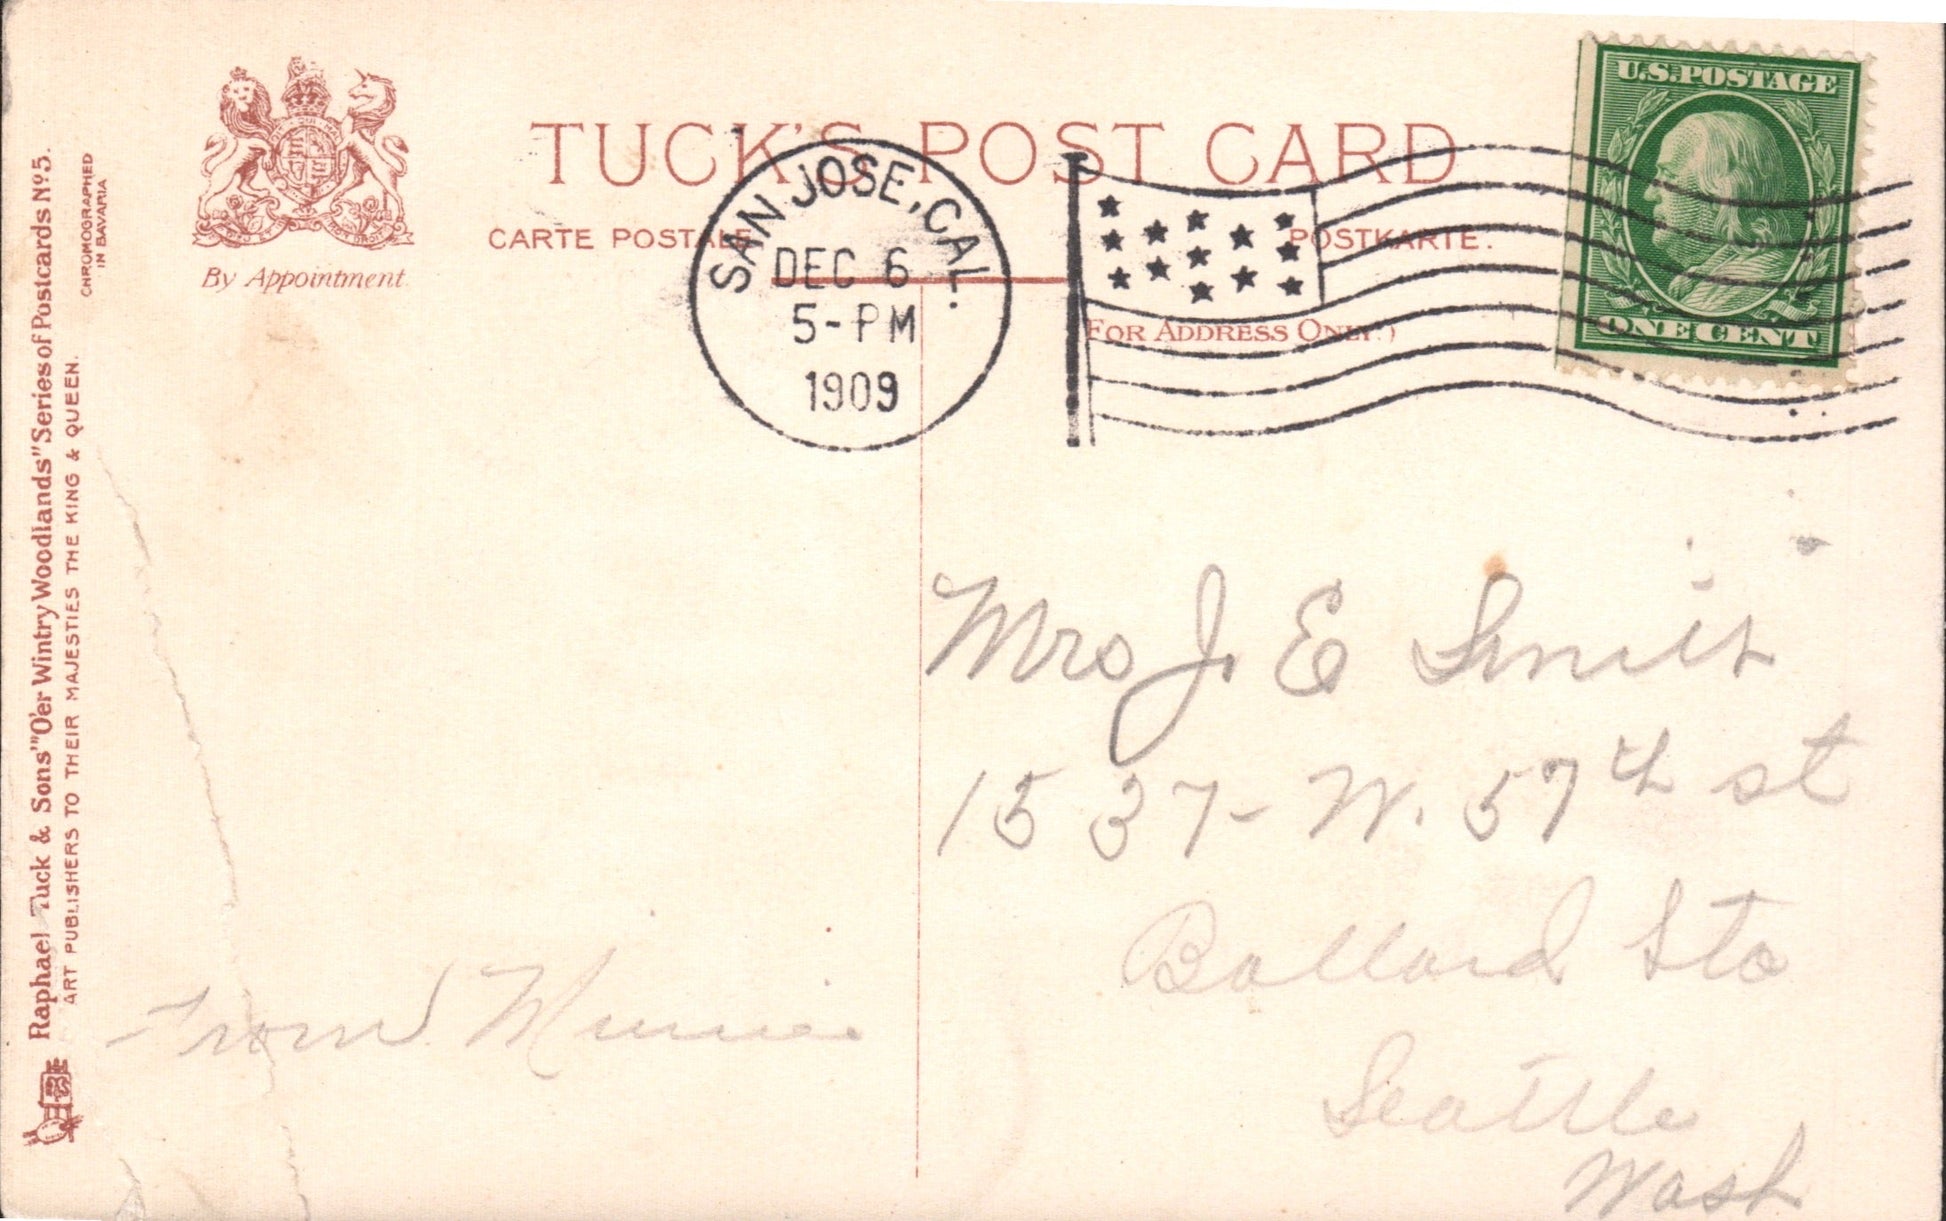 TUCK'S POST CARD
CARTE POSTALE
POSTKARTE.
By Appointment
(FOR ADDRESS ONLY.)
SAN JOSE, CAL.
DEC 6
5-PM
1909
U.S. POSTAGE
ONE CENT
Raphael Tuck & Sons' "O'er Wintry Woodlands" Series of Postcards Nº 5.
ART PUBLISHERS TO THEIR MAJESTIES THE KING & QUEEN.
CHROMOGRAPHED
IN BAVARIA
Mrs J. E Smith
1537- W. 57th st
Ballard Sta
Seattle
Wash
From